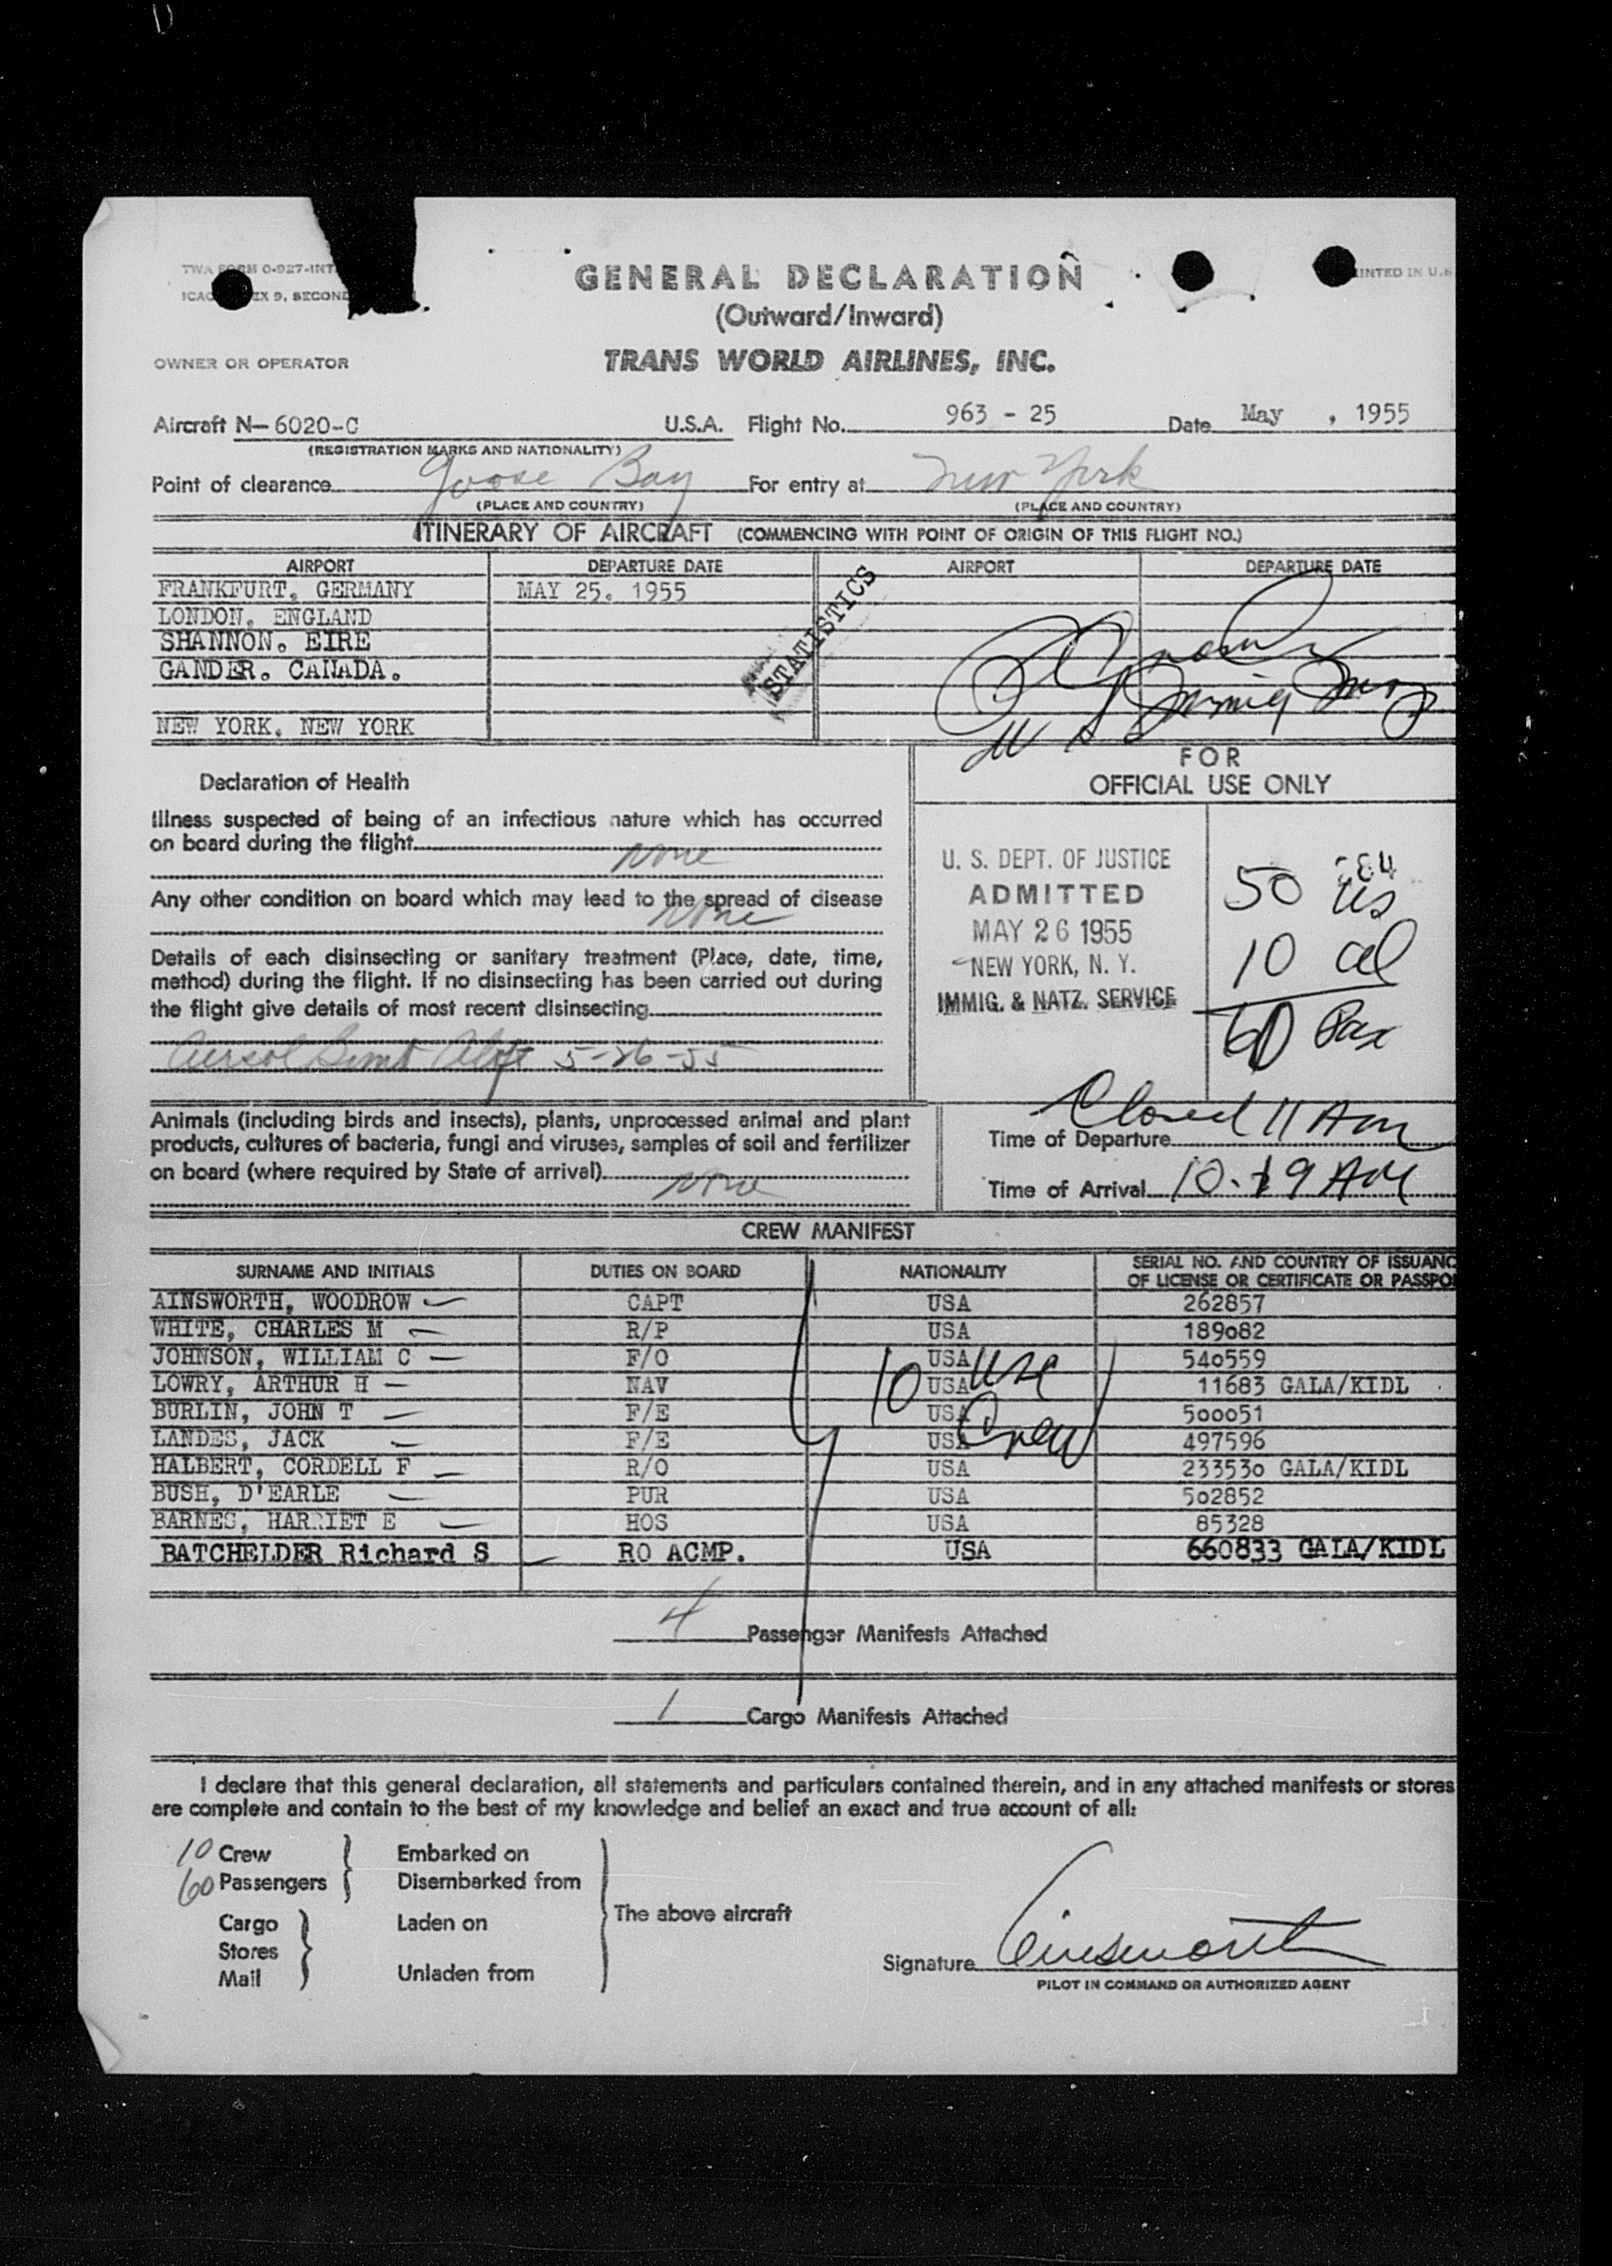 GENERAL DECLARATION
(Outward/Inward)
OWNER OR OPERATOR
TRANS WORLD AIRLINES, INC.
Aircraft N-6020-C U.S.A. Flight No. 963 - 25 Date May , 1955
(REGISTRATION MARKS AND NATIONALITY)
Point of clearance Goose Bay For entry at New York
(PLACE AND COUNTRY) (PLACE AND COUNTRY)
ITINERARY OF AIRCRAFT (COMMENCING WITH POINT OF ORIGIN OF THIS FLIGHT NO.)
AIRPORT DEPARTURE DATE AIRPORT DEPARTURE DATE
FRANKFURT, GERMANY MAY 25, 1955
LONDON, ENGLAND
SHANNON. EIRE
GANDER. CANADA.
NEW YORK, NEW YORK
STATISTICS
FOR
OFFICIAL USE ONLY
Declaration of Health
Illness suspected of being of an infectious nature which has occurred
on board during the flight
none
Any other condition on board which may lead to the spread of disease
none
Details of each disinsecting or sanitary treatment (Place, date, time,
method) during the flight. If no disinsecting has been carried out during
the flight give details of most recent disinsecting
Aerosol Bomb Aloft 5-26-55
U. S. DEPT. OF JUSTICE
ADMITTED
MAY 26 1955
NEW YORK, N. Y.
IMMIG. & NATZ. SERVICE
50 US
10 al
60 Pax
Animals (including birds and insects), plants, unprocessed animal and plant
products, cultures of bacteria, fungi and viruses, samples of soil and fertilizer
on board (where required by State of arrival)
none
Time of Departure Closed 11 AM
Time of Arrival 10.19 AM
CREW MANIFEST
SURNAME AND INITIALS DUTIES ON BOARD NATIONALITY SERIAL NO. AND COUNTRY OF ISSUANC
OF LICENSE OR CERTIFICATE OR PASSPO
AINSWORTH, WOODROW CAPT USA 262857
WHITE, CHARLES M R/P USA 189082
JOHNSON, WILLIAM C F/O USA 540559
LOWRY, ARTHUR H NAV USA 11683 GALA/KIDL
BURLIN, JOHN T F/E USA 500051
LANDES, JACK F/E USA 497596
HALBERT, CORDELL F R/O USA 233530 GALA/KIDL
BUSH, D'EARLE PUR USA 502852
BARNES, HARRIET E HOS USA 85328
BATCHELDER Richard S RO ACMP. USA 660833 GALA/KIDL
10 USA
Crew
4 Passenger Manifests Attached
1 Cargo Manifests Attached
I declare that this general declaration, all statements and particulars contained therein, and in any attached manifests or stores
are complete and contain to the best of my knowledge and belief an exact and true account of all:
10 Crew Embarked on
60 Passengers Disembarked from
Cargo Laden on The above aircraft
Stores
Mail Unladen from
Signature Ainsworth
PILOT IN COMMAND OR AUTHORIZED AGENT